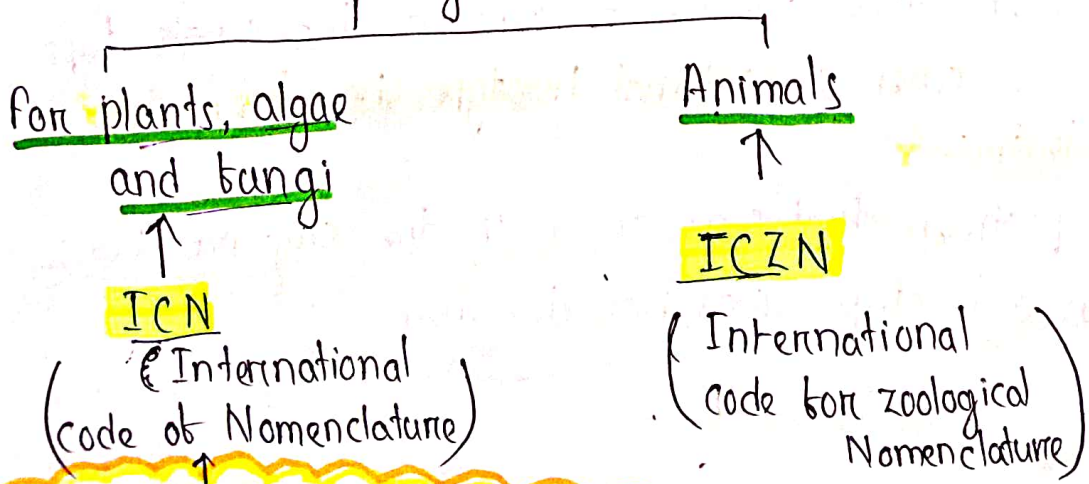 for plants, algae
and fungi
ICN
(International
code of Nomenclature)
Animals
ICZN
(International
code for zoological
Nomenclature)